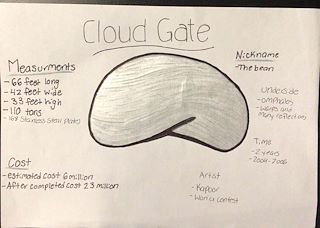 Cloud Gate
Measurments
- 66 feet long
- 42 feet wide
- 33 feet high
- 110 tons
- 168 Stainless Steel plates
Cost
- estimated cost 6 million
- After completed cost 23 million
Nickname
- The bean
Underside
- omphalos
- warps and
many reflections
Time
- 2 years
- 2004-2006
Artist
- Kapoor
- Won a contest